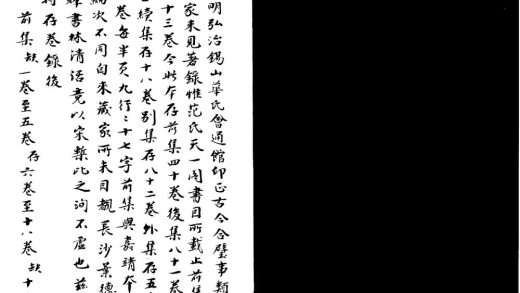 明弘治錫山華氏會通館印正古今合璧事類
家未見著錄惟范氏天一閣書目所載止前集
十三卷今此本存前集四十卷後集八十一卷
續集存十八卷別集存八十二卷外集存五
卷每半頁九行二十七字前集與嘉靖本
次不同自來藏家所未目覩長沙葉德
書林清話竟以宋槧比之洵不虛也茲
將存卷錄後
前集缺一卷至五卷存六卷至十八卷缺十